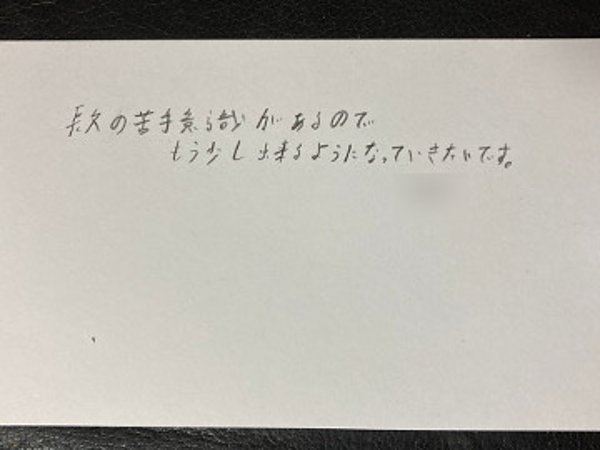 長久の苦手意識があるので
もう少し出来るようになっていきたいです。